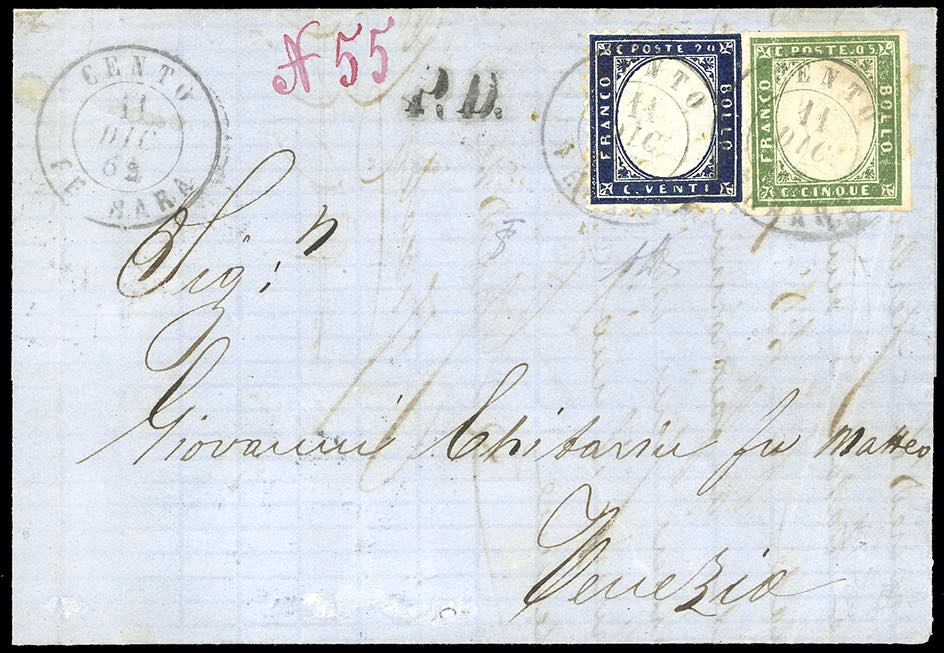 CENTO
11
DIC
62
FERRARA
N 55
P.D.
C. POSTE 20
FRANCO
BOLLO
C. VENTI
C. POSTE. 05
FRANCO
BOLLO
C. CINQUE
CENTO
11
DIC
CENTO
11
DIC
Sig:r
Giovanni Chitarin fu Matteo
Venezia